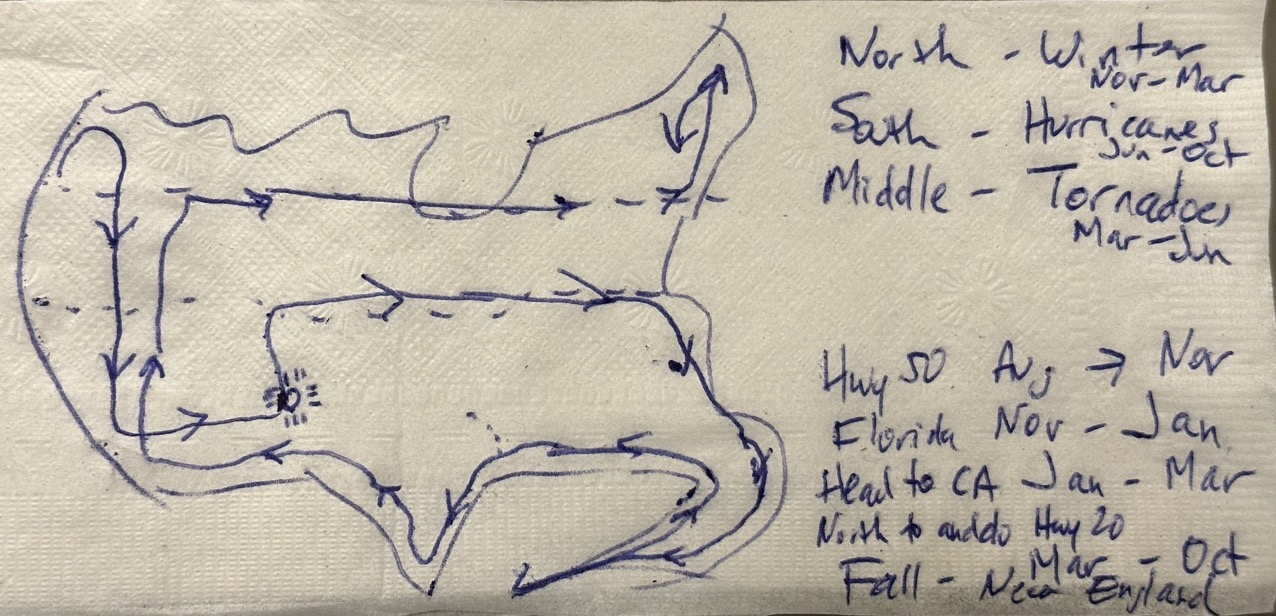 North - Winter
Nov-Mar
South - Hurricanes
Jun-Oct
Middle - Tornadoes
Mar-Jun
Hwy 50 Aug → Nov
Florida Nov - Jan
Head to CA Jan - Mar
North to and do Hwy 20
Mar - Oct
Fall - New England